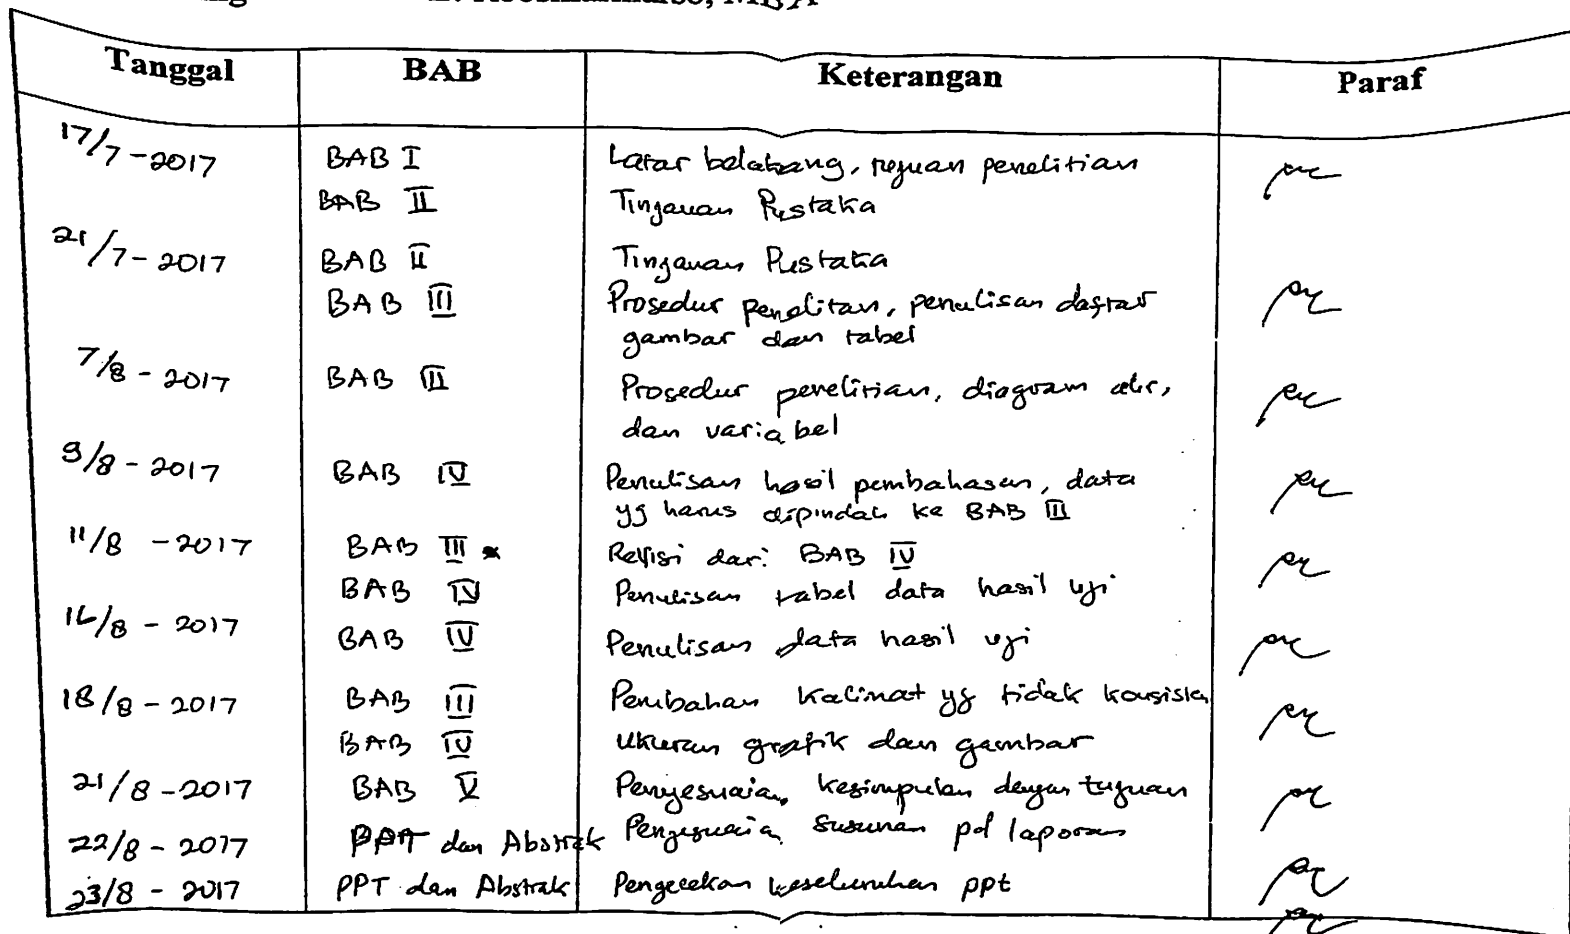 MBA
Tanggal BAB Keterangan Paraf
17/7-2017 BAB I Latar belakang, tujuan penelitian
BAB II Tinjauan Pustaka
21/7-2017 BAB II Tinjauan Pustaka
BAB III Prosedur penelitan, penulisan daftar
gambar dan tabel
7/8-2017 BAB III Prosedur penelitian, diagram alir,
dan variabel
9/8-2017 BAB IV Penulisan hasil pembahasan, data
yg harus dipindah ke BAB III
11/8-2017 BAB III Revisi dari BAB IV
BAB IV Penulisan tabel data hasil uji
16/8-2017 BAB IV Penulisan data hasil uji
18/8-2017 BAB III Perubahan kalimat yg tidak konsisten
BAB IV Ukuran grafik dan gambar
21/8-2017 BAB V Penyesuaian kesimpulan dengan tujuan
22/8-2017 PPT dan Abstrak Penyesuaian susunan pd laporan
23/8-2017 PPT dan Abstrak Pengecekan keseluruhan ppt